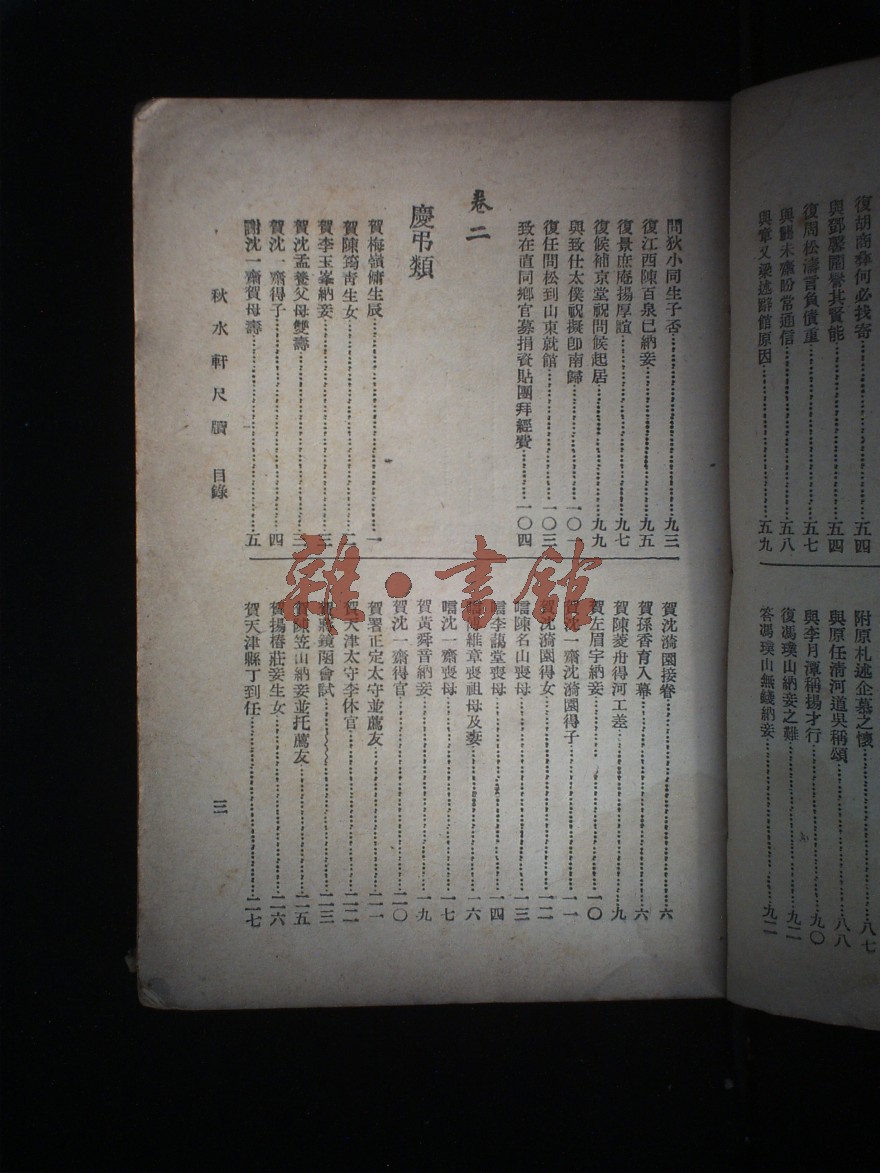 復胡商雍何必找寄……五四
與鄧馨圃譽其賢能……五四
復周松濤言負債重……五七
與龔未齋盼常通信……五八
與章又梁述辭館原因……五九
附原札述企慕之懷……八七
與原任清河道吳稱頌……八八
與李月潭稱揚才行……九〇
復馮璞山納妾之難……九二
答馮璞山無錢納妾……九二
問狄小同生子否……九三
復江西陳百泉已納妾……九五
復景庶庵揚厚誼……九七
復候補京堂祝問候起居……九九
與致仕太僕祝擬卽南歸……一〇一
復任問松到山東就館……一〇三
致在直同鄉官募捐資貼團拜經費……一〇四
卷二
慶弔類
賀梅嶺傭生辰……一
賀陳筠靑生女……二
賀李玉峯納妾……三
賀沈孟養父母雙壽……三
賀沈一齋得子……四
謝沈一齋賀母壽……五
賀沈漪園接眷……六
賀孫香育入幕……六
賀陳菱舟得河工差……九
賀左眉宇納妾……一〇
賀沈一齋沈漪園得子……一一
賀沈漪園得女……一二
唁陳名山喪母……一三
唁李藹堂喪母……一四
唁 維章喪祖母及妻……一六
唁沈一齋喪母……一七
賀黃舜音納妾……一九
賀沈一齋得官……二〇
賀署正定太守並薦友……二一
賀天津太守李休官……二二
賀 鏡 會試……二三
賀陳笠山納妾並托薦友……二五
賀揚椿莊妾生女……二六
賀天津縣丁到任……二七
秋水軒尺牘 目錄 三
雜·書館